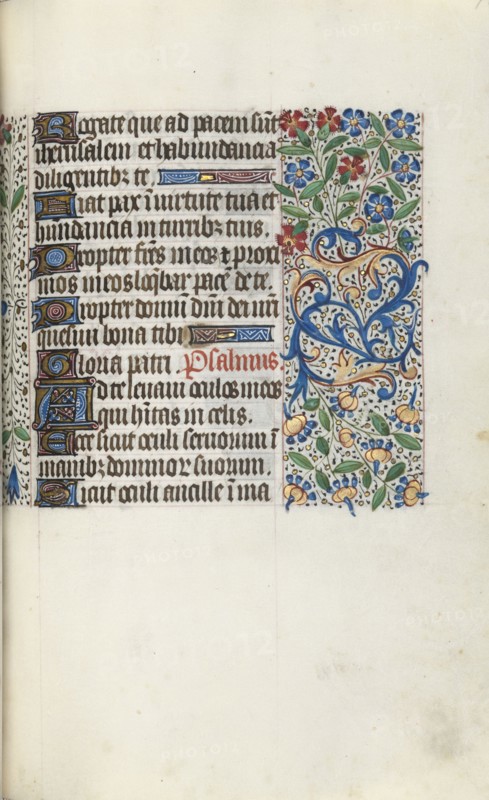 Rogate que ad pacem sūt
iherusalem et habundancia
diligentibꝫ te
Fiat pax ī virtute tua et
hundancia in turribꝫ tuis.
Propter frēs meos ⁊ proxi
mos meos loq̄bar pacē de te.
Propter domū dn̄i dei nr̄i
quesiui bona tibi
Gloria patri Psalmus.
Ad te leuaui oculos meos
qui hītas in celis.
Ecce sicut oculi seruorum ī
manibꝫ dominoꝝ suorum.
Sicut oculi ancille ī ma